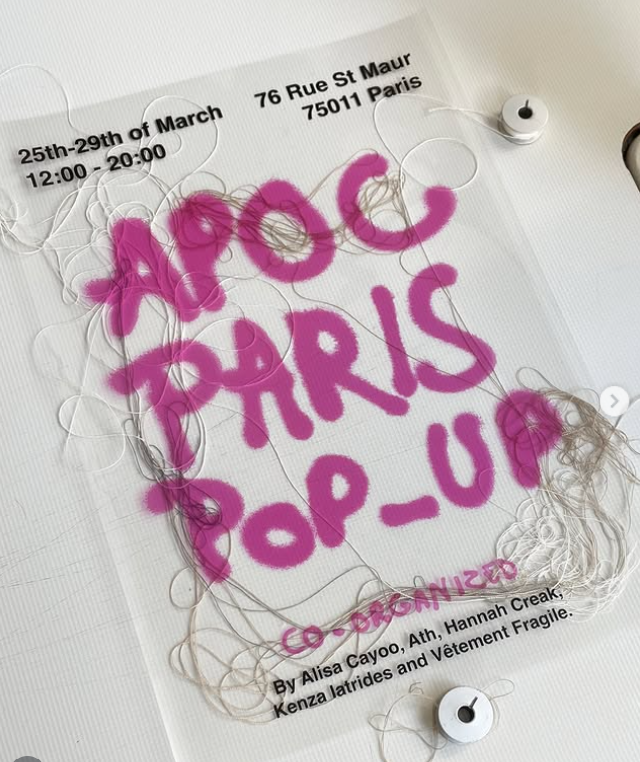 25th-29th of March
12:00 - 20:00
76 Rue St Maur
75011 Paris
APOC
PARIS
POP-UP
CO-ORGANIZED
By Alisa Cayoo, Ath, Hannah Creak,
Kenza Iatrides and Vêtement Fragile.